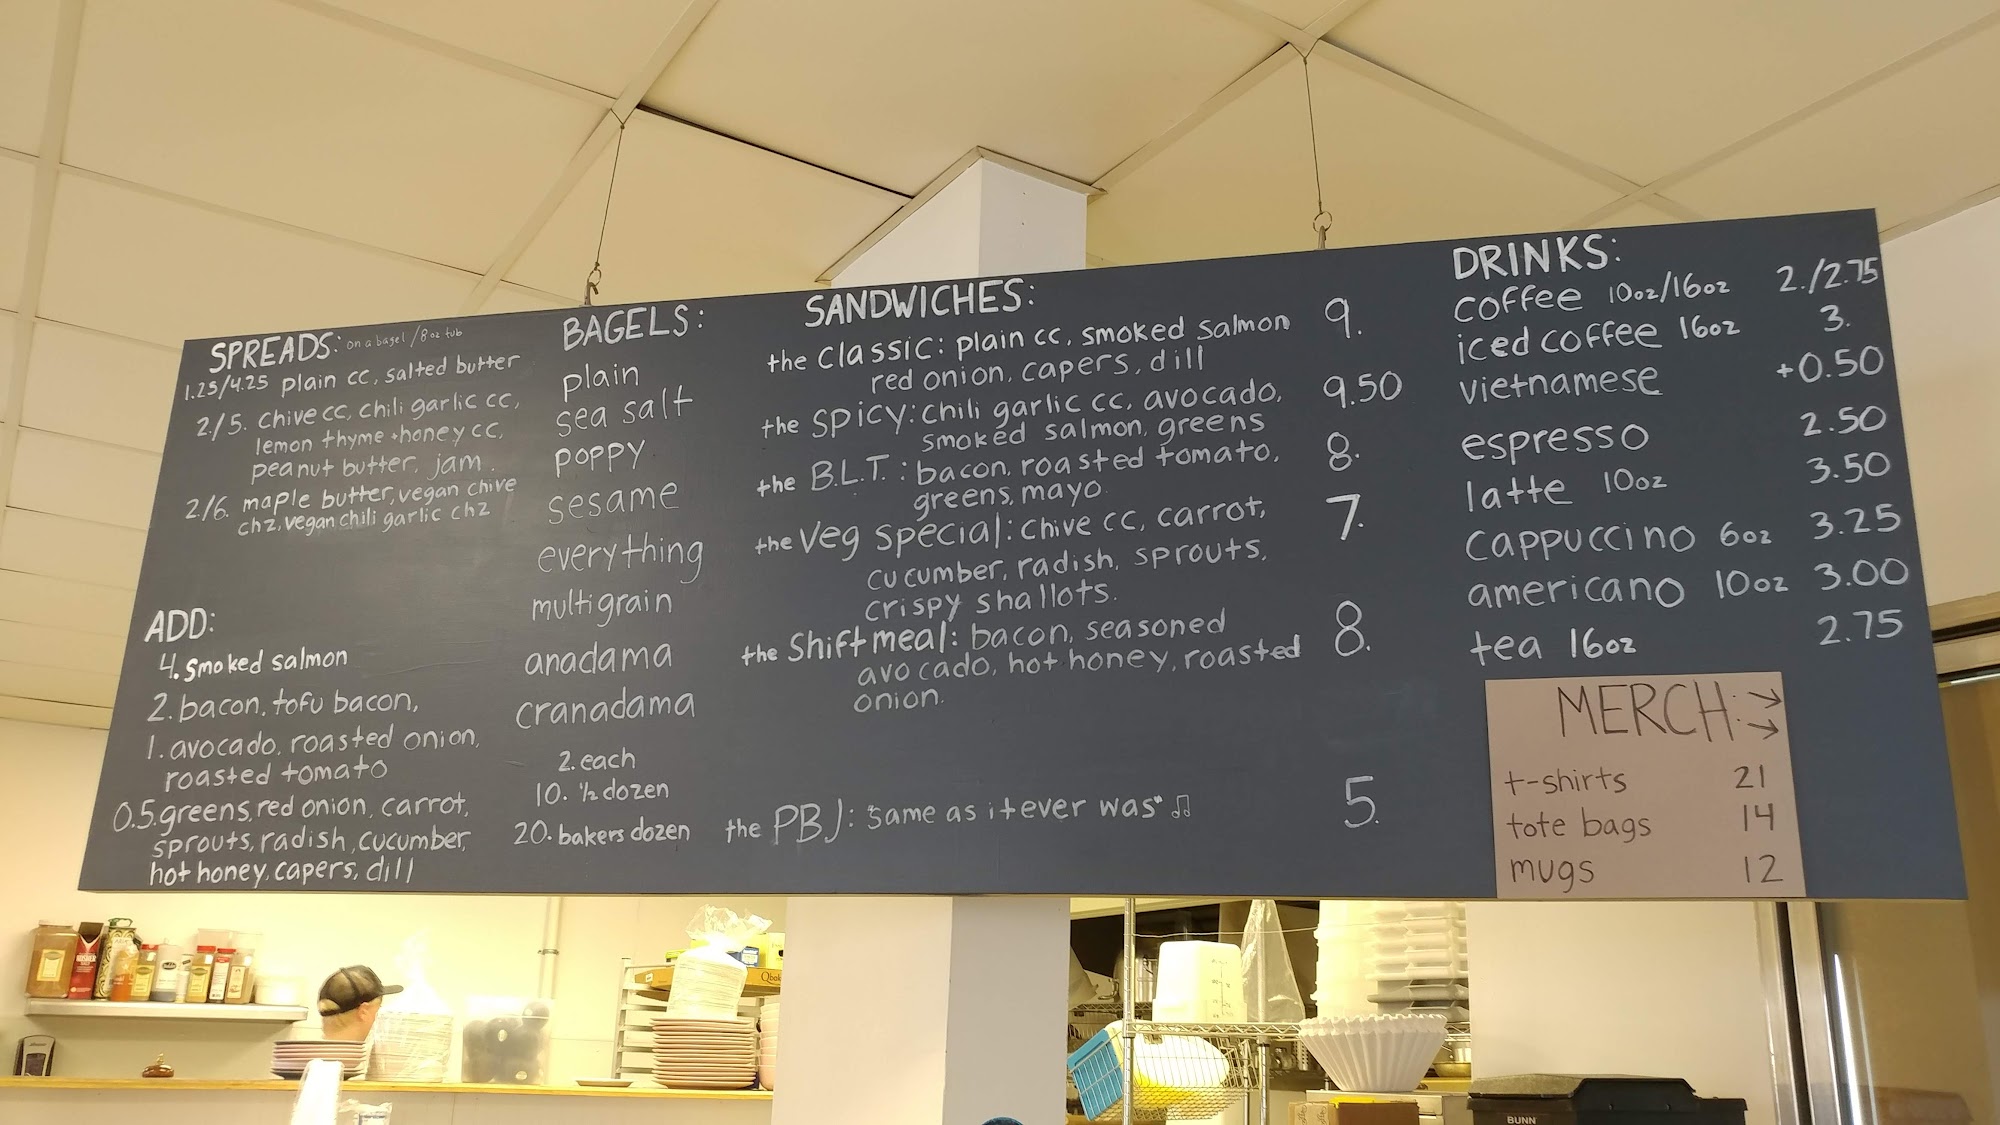 SPREADS: on a bagel / 8oz tub
1.25/4.25 plain cc, salted butter
2/5. chive cc, chili garlic cc,
lemon thyme + honey cc,
peanut butter, jam.
2/6. maple butter, vegan chive
chz, vegan chili garlic chz
ADD:
4. smoked salmon
2. bacon, tofu bacon,
1. avocado, roasted onion,
roasted tomato
0.5. greens, red onion, carrot,
sprouts, radish, cucumber,
hot honey, capers, dill
BAGELS:
plain
sea salt
poppy
sesame
everything
multigrain
anadama
cranadama
2. each
10. ½ dozen
20. bakers dozen
SANDWICHES:
the Classic: plain cc, smoked salmon 9.
red onion, capers, dill
the Spicy: chili garlic cc, avocado, 9.50
smoked salmon, greens
the B.L.T.: bacon, roasted tomato, 8.
greens, mayo
the Veg Special: chive cc, carrot, 7.
cucumber, radish, sprouts,
crispy shallots.
the Shiftmeal: bacon, seasoned 8.
avocado, hot honey, roasted
onion.
the PBJ: "same as it ever was" ♫ 5.
DRINKS:
coffee 10oz/16oz 2./2.75
iced coffee 16oz 3.
vietnamese +0.50
espresso 2.50
latte 10oz 3.50
cappuccino 6oz 3.25
americano 10oz 3.00
tea 16oz 2.75
MERCH: →
→
t-shirts 21
tote bags 14
mugs 12
BUNN